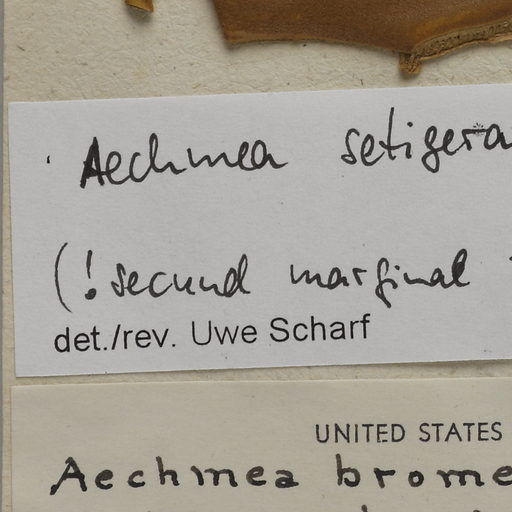 Aechmea setigera
(! secund marginal
det./rev. Uwe Scharf
UNITED STATES
Aechmea brome